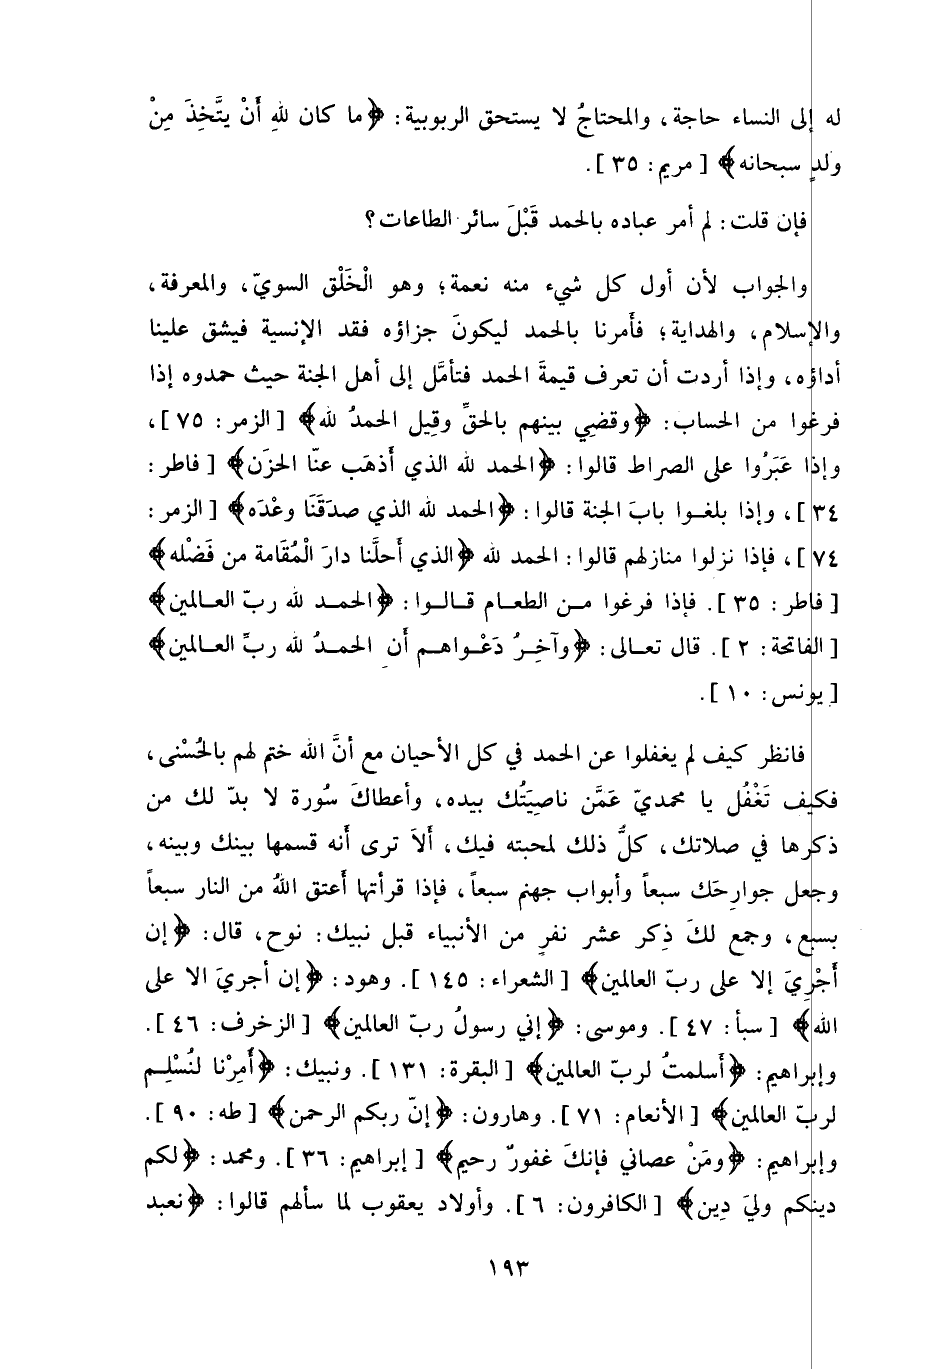 له إلى النساء حاجة، والمحتاجُ لا يستحق الربوبية: ﴿ما كان للهِ أَنْ يتَّخِذَ مِنْ
ولدٍ سبحانه﴾ [مريم: ٣٥].
فإن قلت: لم أمر عباده بالحمد قَبْلَ سائر الطاعات؟
والجواب لأن أول كل شيء منه نعمة؛ وهو الْخَلْق السويّ، والمعرفة،
والإسلام، والهداية؛ فأَمرنا بالحمد ليكونَ جزاؤه فقد الإنسية فيشق علينا
أداؤه، وإذا أردت أن تعرف قيمةَ الحمد فتأمَّل إلى أهل الجنة حيث حمدوه إذا
فرغوا من الحساب: ﴿وقضِي بينهم بالحقِّ وقِيل الحمدُ لله﴾ [الزمر: ٧٥]،
وإذا عَبَرُوا على الصراط قالوا: ﴿الحمد لله الذي أَذهَب عنّا الحزَن﴾ [فاطر:
٣٤]، وإذا بلغوا بابَ الجنة قالوا: ﴿الحمد لله الذي صدَقَنَا وعْدَه﴾ [الزمر:
٧٤]، فإذا نزلوا منازلهم قالوا: الحمد لله ﴿الذي أَحلَّنا دارَ الْمُقَامة من فَضْله﴾
[فاطر: ٣٥]. فإذا فرغوا من الطعام قالوا: ﴿الحمد لله ربّ العالمين﴾
[الفاتحة: ٢]. قال تعالى: ﴿وآخِرُ دَعْواهم أَنِ الحمدُ لله ربِّ العالمين﴾
[يونس: ١٠].
فانظر كيف لم يغفلوا عن الحمد في كل الأحيان مع أنَّ الله ختم لهم بالحُسْنى،
فكيف تَغْفُل يا محمديّ عَمَّن ناصيَتُك بيده، وأعطاكَ سُورة لا بدّ لك من
ذكرها في صلاتك، كلُّ ذلك لمحبته فيك، أَلاَ ترى أَنه قسمها بينك وبينه،
وجعل جوارِحَك سبعاً وأبواب جهنم سبعاً، فإذا قرأتها أَعتق اللهُ من النار سبعاً
بسبع، وجمع لكَ ذِكر عشر نفرٍ من الأنبياء قبل نبيك: نوح، قال: ﴿إن
أَجْرِيَ إلا على ربّ العالمين﴾ [الشعراء: ١٤٥]. وهود: ﴿إن أجريَ الا على
الله﴾ [سبأ: ٤٧]. وموسى: ﴿إني رسولُ ربّ العالمين﴾ [الزخرف: ٤٦].
وإبراهيم: ﴿أَسلمتُ لربّ العالمين﴾ [البقرة: ١٣١]. ونبيك: ﴿أُمِرْنا لنُسْلِم
لربّ العالمين﴾ [الأنعام: ٧١]. وهارون: ﴿إنّ ربكم الرحمن﴾ [طه: ٩٠].
وإبراهيم: ﴿ومَنْ عصاني فإنكَ غفورٌ رحيم﴾ [إبراهيم: ٣٦]. ومحمد: ﴿لكم
دينكم وليَ دِين﴾ [الكافرون: ٦]. وأولاد يعقوب لما سألهم قالوا: ﴿نعبد
١٩٣